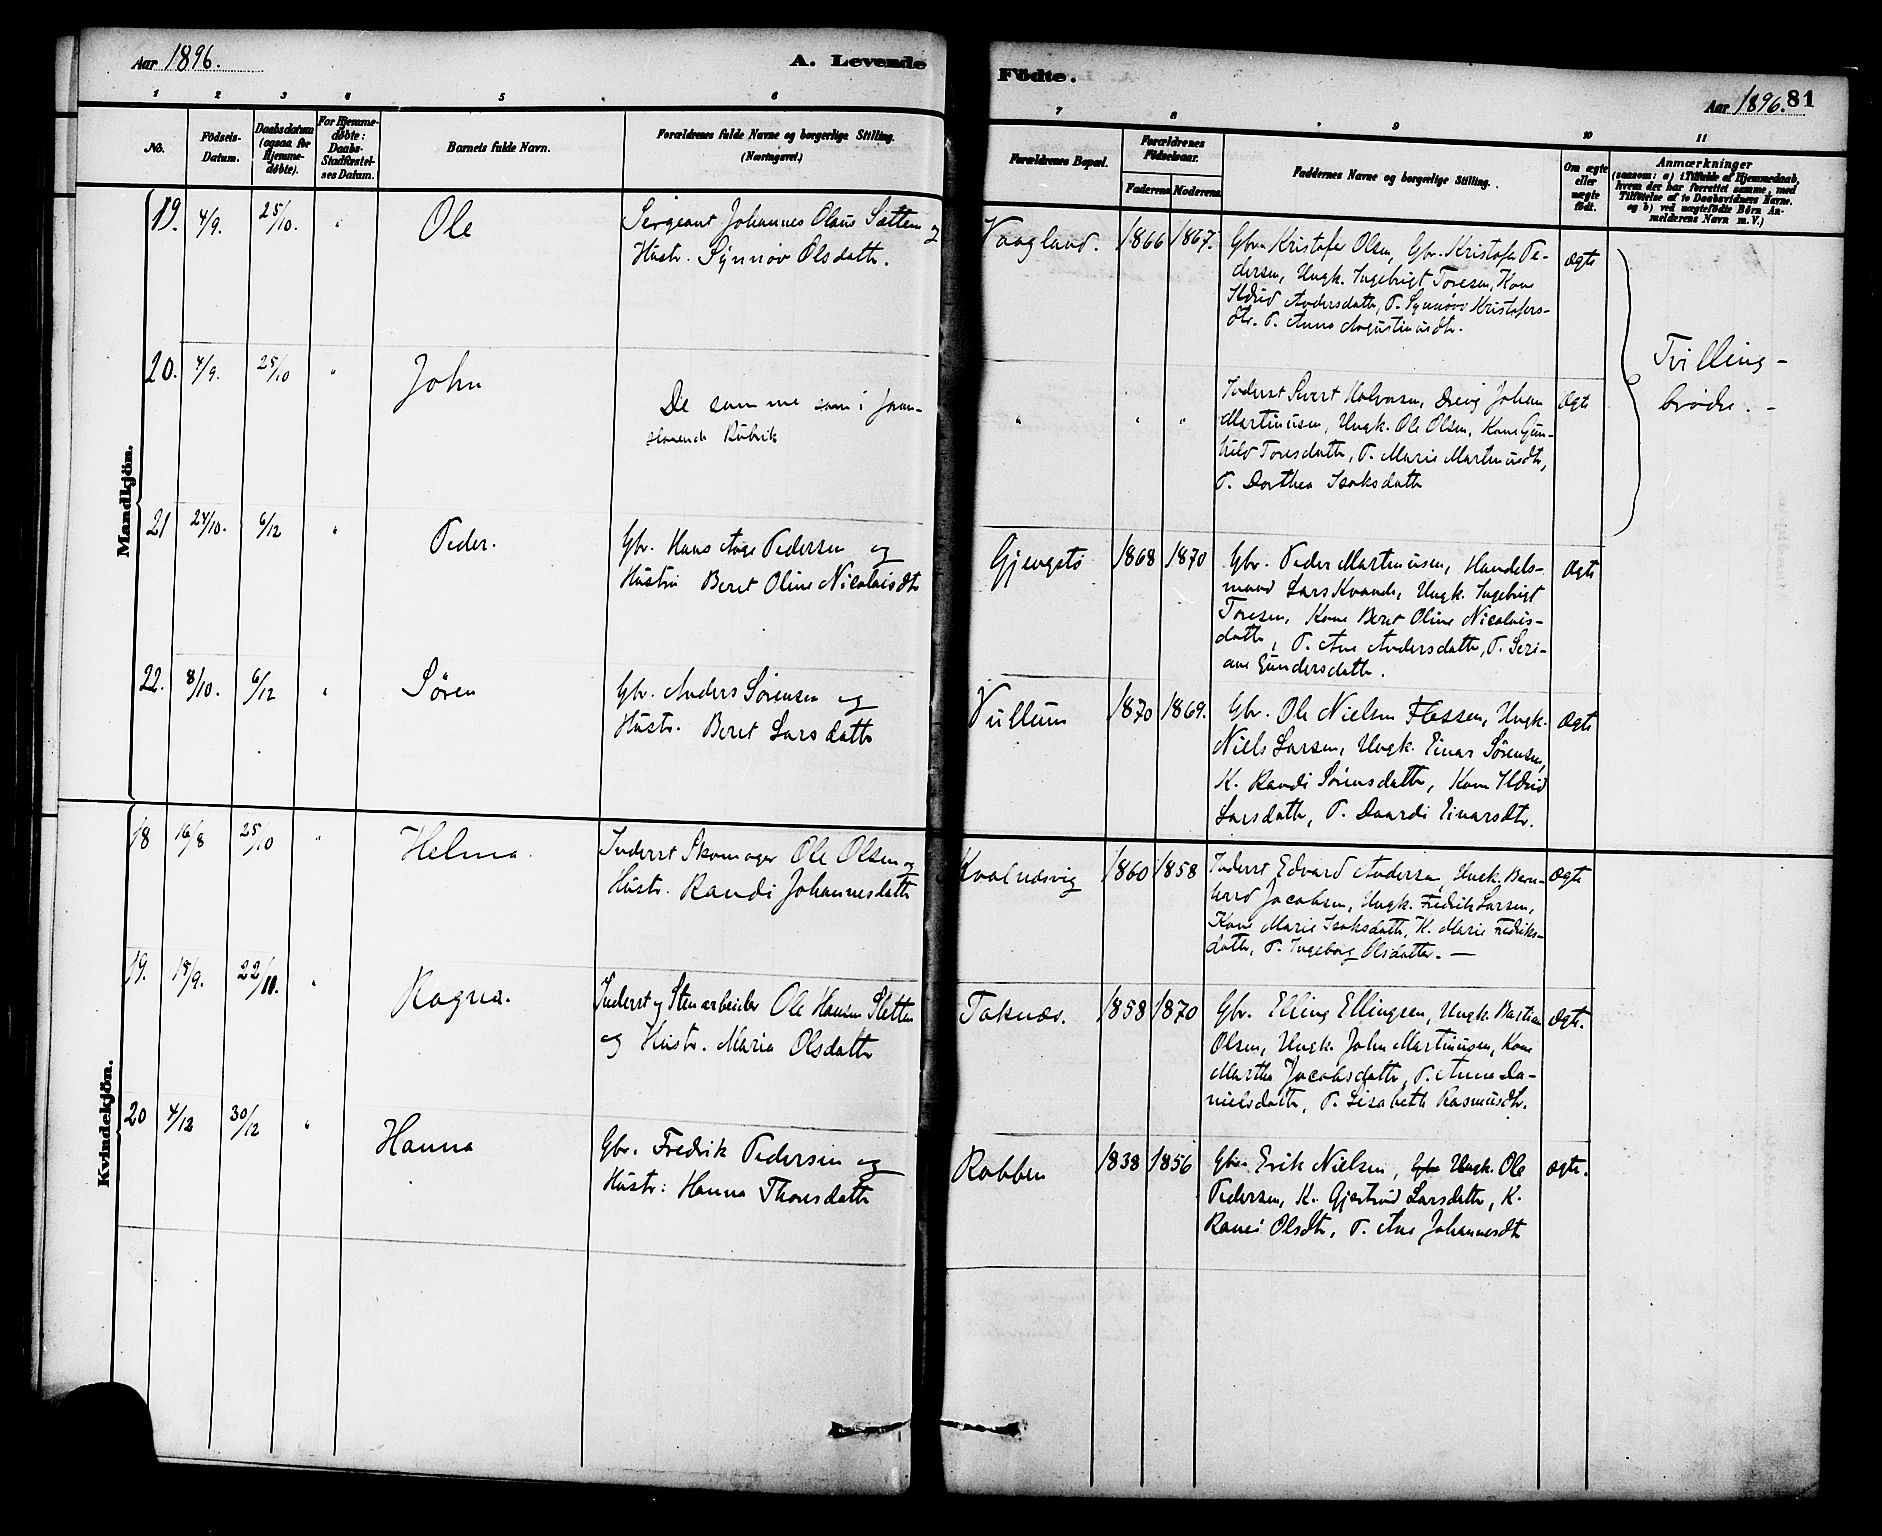 Aar 1896.
A. Levende
Födte.
Aar 1896. 81
1 2 3 4 5 6
7 8 9 10 11
No.
Födsels-
Datum.
Daabsdatum
(ogsaa for
Hjemme-
døbte).
For Hjemme-
døbte:
Daabs-
Stadfæstel-
ses Datum.
Barnets fulde Navn.
Forældrenes fulde Navne og borgerlige Stilling.
(Næringsvei.)
Forældrenes Bopæl.
Forældrenes
Födselsaar.
Faderens Moderens
Faddernes Navne og borgerlige Stilling.
Om ægte
eller
uægte
födt.
Anmærkninger
(saasom: a) i Tilfælde af Hjemmedaab,
hvem der har forrettet samme, med
Tilföielse af to Daabsvidners Navne.
og b) ved uægtefödte Börn An-
melderens Navn m. V.)
Mandkjön.
19. 4/9. 25/10. " Ole
Sergeant Johannes Olaus Sætten og
Hustr. Synnøv Olsdatter.
Vaagland. 1866 1867.
Gbr. Kristofer Olsen, Gbr. Kristofer Pe-
dersen, Ungk. Ingebrigt Toresen, Kone
Ildrid Andersdatter, P. Synnøv Kristofers-
dtr. P. Anna Augustinusdtr.
Ægte
Tvilling-
brødre. -
20. 4/9. 25/10 " John
De samme som i foran-
staaende Rubrik
" " "
Inderst Sivert Halvorsen, Dreng Johan
Martinusen, Ungk. Ole Olsen, Kone Gun-
hild Toresdatter, P. Marie Martinusdtr,
P. Dorthea Isaksdatter
Ægte
21 24/10. 6/12 " Peder.
Gbr. Hans Aage Pedersen og
Hustru Beret Oline Nicolaisdtr
Gjengstø 1868 1870
Gbr. Peder Martinusen, Handels-
mand Lars Kvande, Ungk. Ingebrigt
Toresen, Kone Beret Oline Nicolais-
datter, P. Ane Andersdatter, P. Seri-
ane Gundersdatter.
Ægte
22. 8/10. 6/12 " Søren
Gbr. Anders Sørensen og
Hustr. Beret Larsdatter
Vullum 1870 1869.
Gbr. Ole Nielsen Flessen, Ungk.
Niels Larsen, Ungk. Einar Sørensen,
K. Randi Sørensdatter, Kone Ildrid
Larsdatter, P. Daardi Einarsdtr.
Ægte
Kvindekjön.
18 16/8 25/10 " Helma.
Inderst Skomager Ole Olsen og
Hustr. Randi Johannesdatter
Kvalnesvig 1860 1858
Inderst Edvard Andersen, Ungk. Bern-
hard Jacobsen, Ungk. Fredrik Larsen,
Kone Marie Isaksdatter, K. Marie Fredriks-
datter, P. Ingeborg Olsdatter. -
Ægte
19. 18/9. 22/11. " Ragna.
Inderst og Stenarbeider Ole Hansen Sletten
og Hustr. Maria Olsdatter
Taknæs. 1858 1870
Gbr. Elling Ellingsen, Ungk. Bastian
Olsen, Ungk. John Martinusen, Kone
Martha Jacobsdatter, P. Anne Da-
nielsdatter, P. Lisabeth Rasmusdtr.
Ægte.
20 4/12 30/12 " Hanna
Gbr. Fredrik Pedersen og
Hustr. Hanna Thoresdatter
Rabben 1838 1856
Gbr. Erik Nielsen, Gbr Ungk. Ole
Pedersen, K. Gjertrud Larsdatter, K.
Randi Olsdtr, P. Ane Johannesdtr
Ægte.